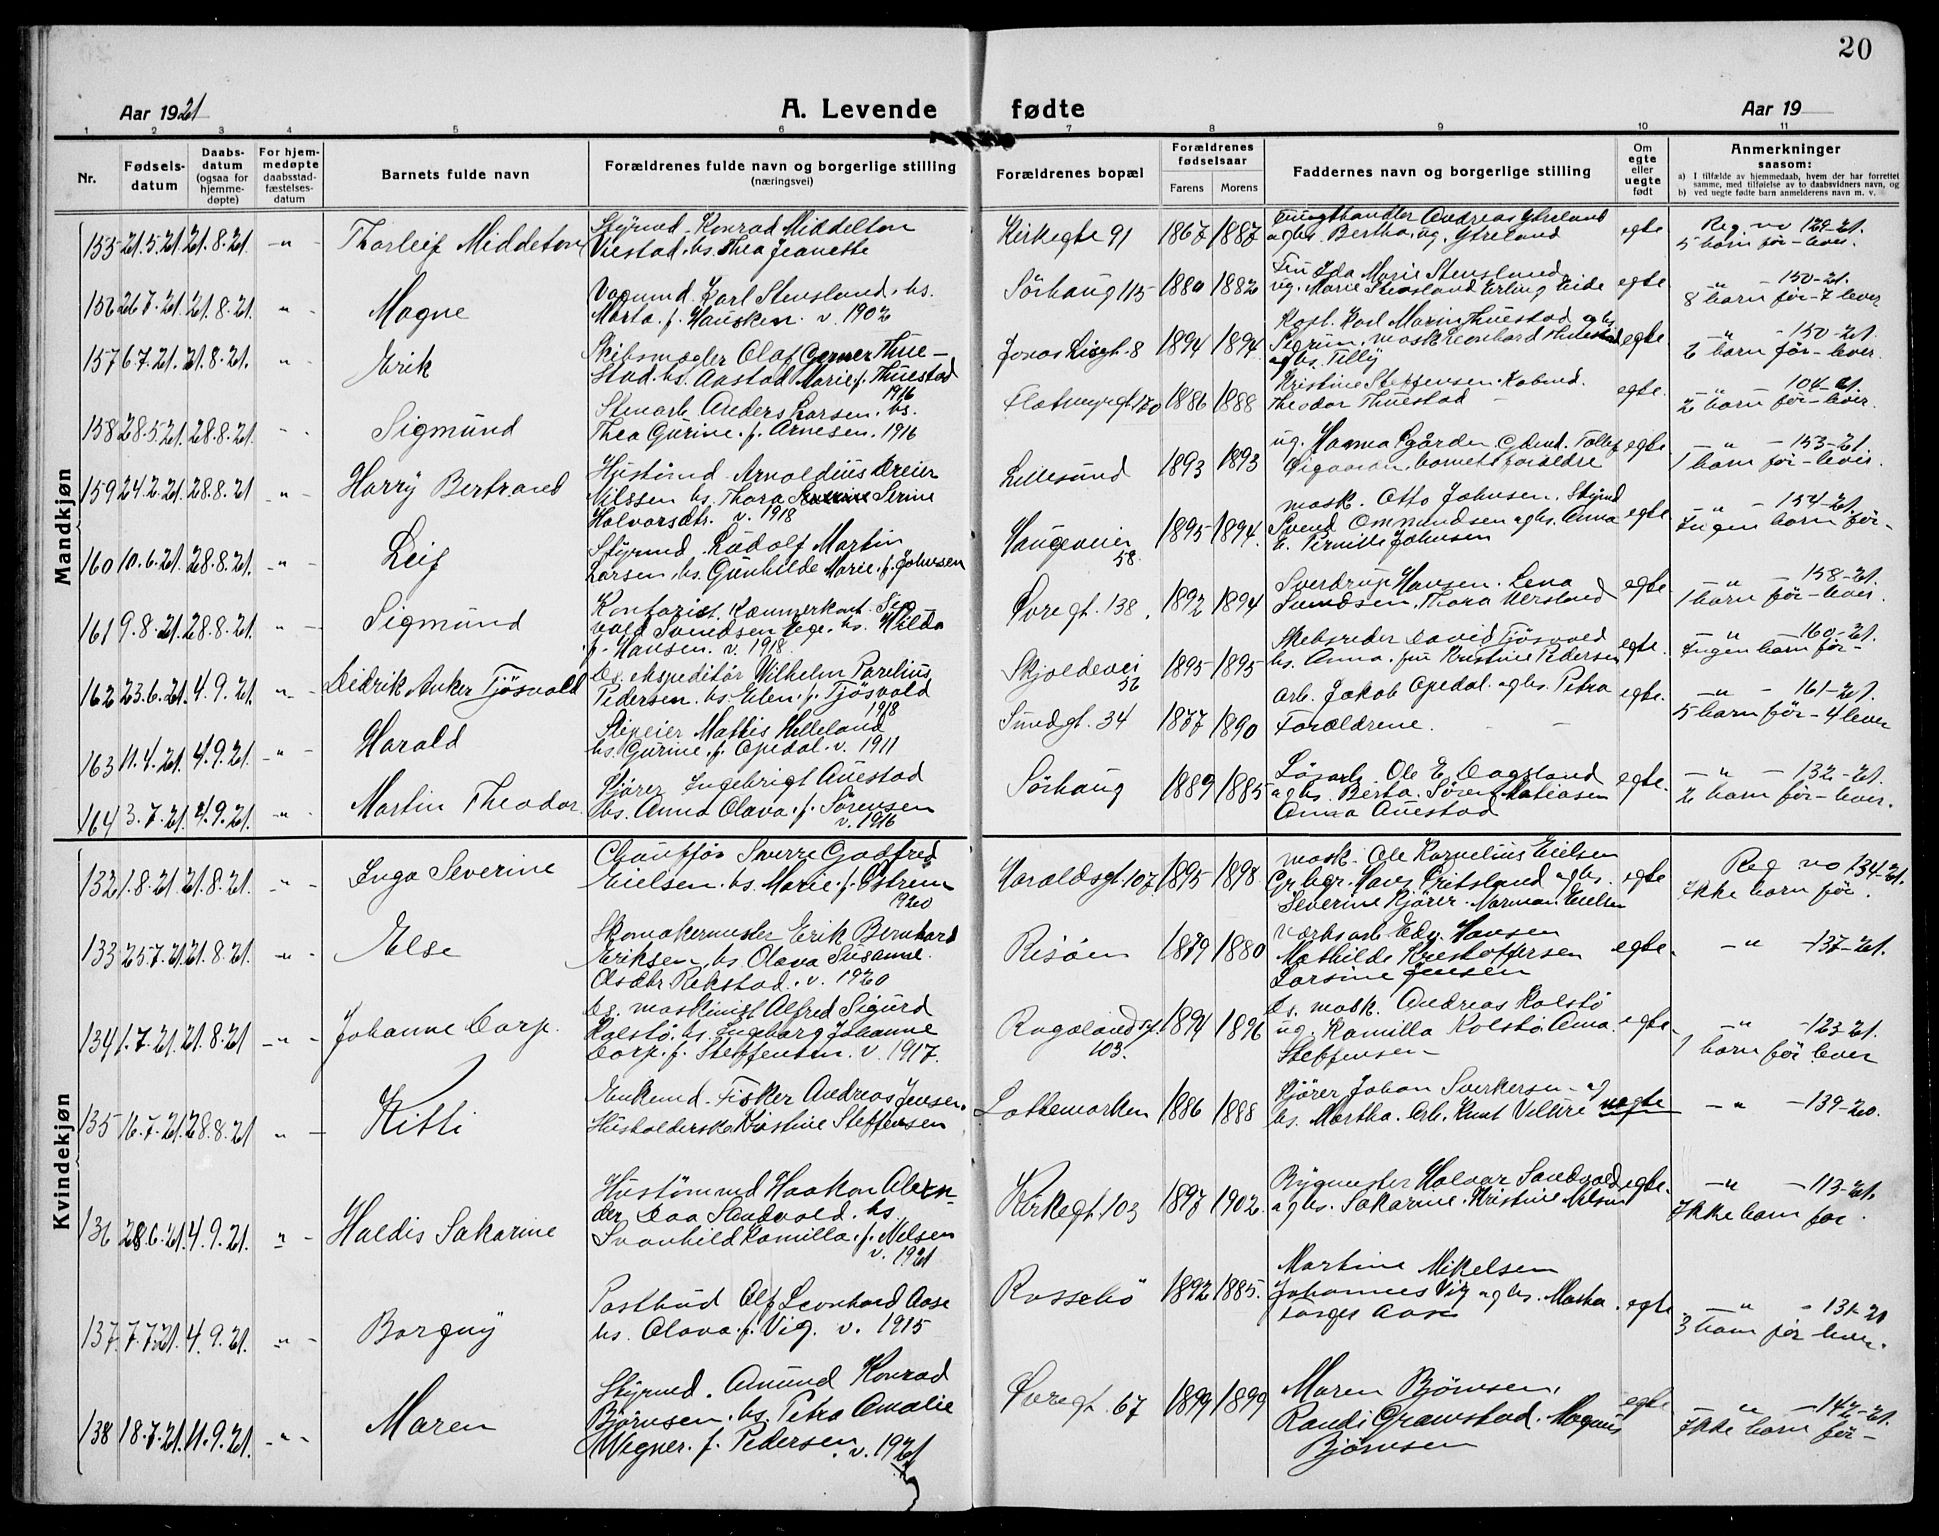 20
Aar 1921
A. Levende fødte
Aar 19
1 2 3 4 5 6 7 8 9 10 11
Nr.
Fødsels-
datum
Daabs-
datum
(ogsaa for
hjemme-
døpte)
For hjem-
medøpte
daabsstad-
fæstelses-
datum
Barnets fulde navn
Forældrenes fulde navn og borgerlige stilling
(næringsvei)
Forældrenes bopæl
Forældrenes
fødselsaar
Farens Morens
Faddernes navn og borgerlige stilling
Om
egte
eller
uegte
født
Anmerkninger
saasom:
a) I tilfælde av hjemmedaab, hvem der har forrettet
samme, med tilføielse av to daabsvidners navn, og
b) ved uegte født barn anmelderens navn m. v.
Mandkjøn
153 21.5.21. 21.8.21. -"- Thorleif Middelton
Styrmd. Konrad Middelton
Viestad. hs. Thea Jeanette
Kirkegte 91 1867 1887
Andreas Ytreland
oghs. Bertha. ug. Ytreland
egte
Reg. no 129-21.
5 barn før - lever.
156 26.7.21. 21.8.21. " Magne
Vognmd. Karl Stensland. hs.
Marta. f. Hausken. v. 1902
Sörhaug 115 1880 1882
Fru Ida Marie Stensland
ug. Marie Stensland Erling Eide
egte
" - 150-21.
8 barn før - 7 lever
157 6.7.21. 21.8.21. " Erik
Skibsmægler Olaf Gerner Thue-
stad. hs. Aastad Marie f. Thuestad
1916
Jonas Liegt. 8 1894 1894.
Sigrun, mask Leonhard Thuestad
oghs. Tilly
egte
" - 150-21.
2 barn før - lever.
158 28.5.21. 28.8.21. " Sigmund
Stenarb. Anders Larsen. hs.
Thea Gurine. f. Arnesen. 1916
Flotmyrgt 170 1886 1888
Kristine Steffensen. Kobmd.
Theodor Thuestad
egte.
" - 104-21.
2 barn før - lever.
159 24.2.21. 28.8.21 " Harry Bertrand
Hustömd. Arnoldius Dreier
Nilssen hs. Thora Serine
Halvorsdtr. v. 1918
Lillesund 1893 1893
ug. Hanna
barnets forældre
egte
" - 153-21.
1 barn før - lever.
160 10.6.21. 28.8.21. " Leif
Styrmd. Rudolf Martin
Larsen. hs. Gunhilde Marie. f. Johnsen
Haugeveien
58. 1895 1894.
mask. Otto Johnsen. Styrmd
Svend Ommundsen oghs. Anna
E. Pernille Johnsen
egte
" - 154-21.
Ingen barn før -
161 9.8.21. 28.8.21. " Sigmund
Kontorist. Kæmnerkont. Sig-
vald Svendsen Ege. hs. Hilda
f. Hansen. v. 1918.
Øvregt. 138. 1892 1894
Sverdrup Hansen. Lena
Svendsen. Thora
egte.
" - 158-21.
1 barn før - lever.
162 23.6.21. 4.9.21. " Didrik Anker Tjösvold
Ds. ekspeditör Vilhelm Parelius
Pedersen. hs. Elen. f. Tjösvold
1918
Skjoldevei
52 1895 1895
Skibsreder David Tjösvold
hs. Anna. fru Kristine Pedersen
egte.
" - 160-21.
Ingen barn før -
163 11.4.21. 4.9.21. " Harald
Mathis Helleland
hs. Gurine. f. Opedal. v. 1911
Smedgt. 34 1877 1890
Arb. Jakob Opedal. oghs. Petra
Forældrene.
egte.
" - 161-21.
5 barn før - 4 lever
164 3.7.21. 4.9.21. -"- Martin Theodor.
Kjörer Ingebrigt Auestad
hs. Anna Olava. f. Sörensen
v. 1916
Sörhaug 1889 1885
Ole E. Dagsland
oghs. Berta. Sören Matiasen
Anna Auestad
egte.
" - 132-21.
2 barn før - lever.
Kvindekjøn
132 1.8.21 21.8.21. " Inga Severine
Chauffør Sverre Godfred
Eielsen. hs. Marie. f. Østrem
1920
Haraldsgt. 107. 1895 1898.
mask. Ole Kornelius Eielsen
oghs.
Severine Kjörer. Norman. Eielsen
egte
Reg no 134-21.
Ikke barn før.
133 25.7.21 21.8.21. -"- Else
Skomakermester Erik Bernhard
Eriksen. hs. Olava Susanne.
Olsdtr Rekstad. v. 1920
Risöen 1879 1880
Værksarb. Edv. Hansen
Mathilde Kristoffersen
Larsine Jensen
egte.
" - 137-21.
134 1.7.21. 21.8.21 -"- Johanne Dorp.
Ds. maskinist Alfred Sigurd
Kolstö. hs. Ingeborg Johanne
Dorp. f. Steffensen. v. 1917.
Rogalandsgt.
103. 1894 1896
Ds. mask. Andreas Kolstö
ug. Kamilla Kolstö. Anna.
Steffensen
egte.
" - 123-21.
1 barn før lever
135 16.7.21. 28.8.21 " Kitti
Enkemd. Fisker Andreas Jensen.
Husholderske Kristine Steffensen
Lothemarken 1886 1888
Kjörer Johan Sverkersen - og
hs. Martha. Arb. Knut
uegte
" - 139-20.
136 28.6.21. 4.9.21. " Haldis Sakarine
Hustömmd Haakon Alexan-
der Daa Sandvold. hs
Svanhild Kamilla. f. Nilsen
v. 1921
Kirkegt. 103 1897 1902.
Bygmester Halvor Sandvold
oghs. Sakarine. Kristine Nilsen
egte.
" - 113-21.
Ikke barn før.
137. 7.7.21. 4.9.21. " Borgny
Postbud Olf Leonhard Aase
hs. Olava. f. Vig. v. 1915
Rossebö 1892 1885.
Martine Mikelsen
Johannes Vig oghs. Marta.
Aase
egte
" - 131-21
3 barn før lever.
138 18.7.21. 11.9.21. -"- Maren
Styrmd. Amund Konrad
Björnsen. hs. Petra Amalie
Wegner. f. Pedersen. v. 1921
Øvregt. 67 1899 1899
Maren Björnsen.
Randi Gramstad. Magnus
Björnsen
egte
" - 142-21.
Ikke barn før -